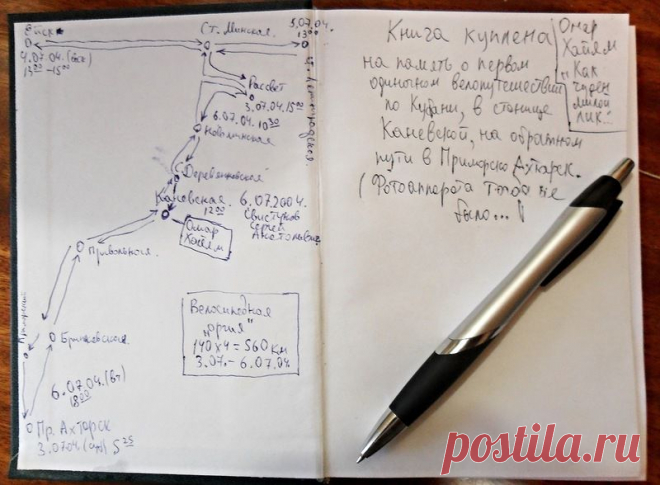 Ейск
Ст. Минская.
5.07.04.
13⁰⁰
4.07.04. (вс)
13⁰⁰ - 15⁰⁰
Рассвет
3.07.04. 15⁰⁰
6.07.04. 10³⁰
Новоминская
Деревянковская
Каневская
12⁰⁰
6.07.2004.
Свистунов
Сергей
Анатольевич
Омар
Хайям
Привольная.
Бриньковская
6.07.04. (вт)
18⁰⁰
Пр. Ахтарск
3.07.04. (суб) 5²⁵
Велосипедная
„оргия"
140 x 4 = 560 км
3.07. - 6.07.04.
Книга куплена
на память о первом
одиночном велопутешествии
по Кубани, в станице
Каневской, на обратном
пути в Приморско Ахтарск.
(Фотоаппарата тогда не
было...)
Омар
Хайям
„Как
чуден
милой
лик..."
postila.ru